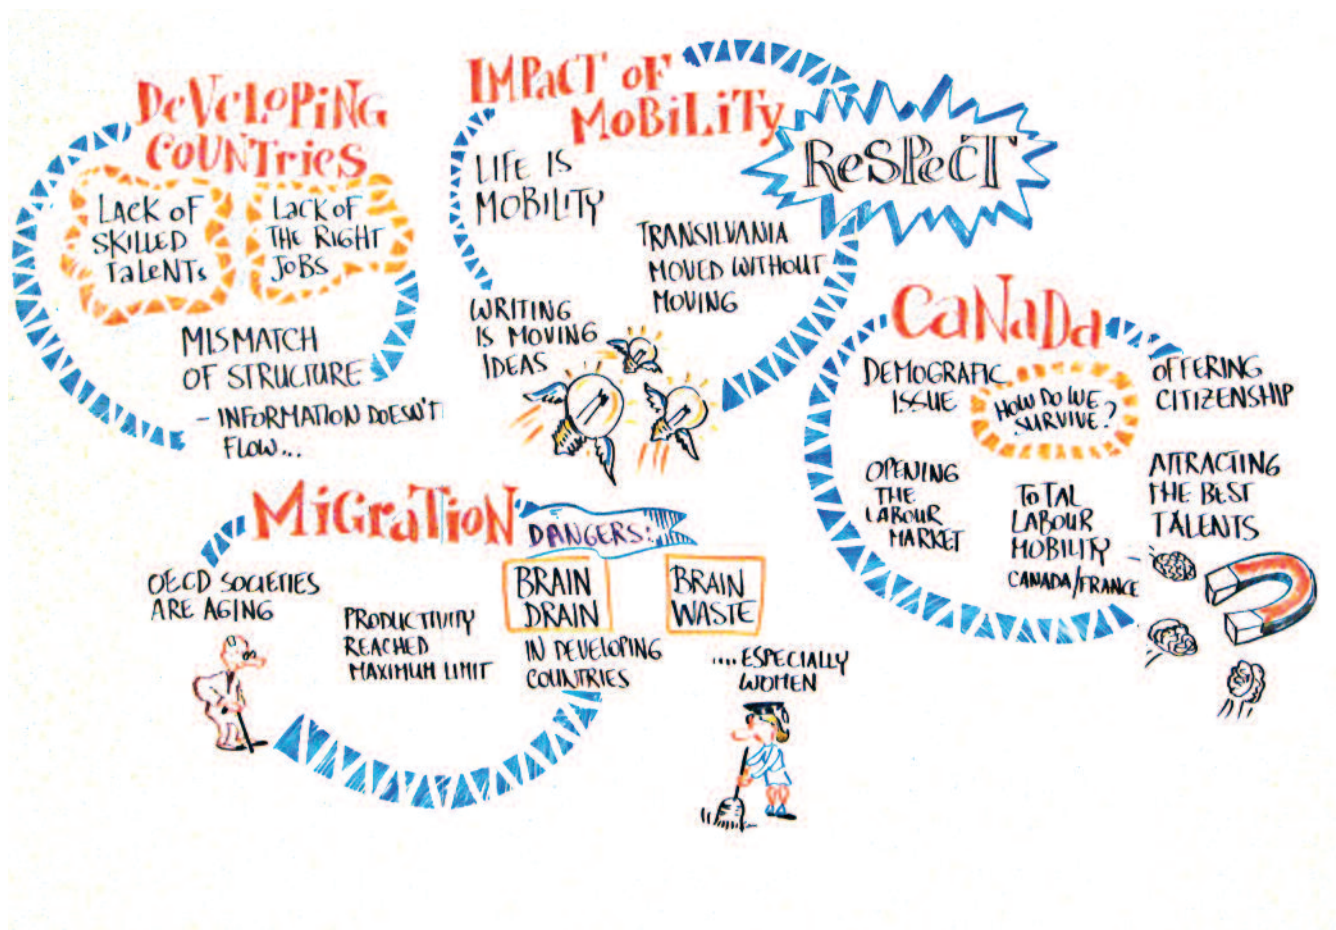 DeVeLoPiNG
CoUNTrieS
LACK oF
SKILLED
TaLeNTs
LacK oF
THE RIGHT
JoBS
MISMATCH
OF STRUCTURE
– INFORMATION DOESN'T
FLOW...
IMPaCT oF
MoBiLiTy
LIFE IS
MOBILITY
ReSPeCT
TRANSILVANIA
MOVED WITHOUT
MOVING
WRITING
IS MOVING
IDEAS
CaNaDa
DEMOGRAFIC
ISSUE
HOW DO WE
SURVIVE?
OFFERING
CITIZENSHIP
OPENING
THE
LABOUR
MARKET
ToTAL
LABOUR
MOBILITY –
CANADA/FRANCE
ATTRACTING
THE BEST
TALENTS
MiGraTioN
DANGERS:
OECD SOCIETIES
ARE AGING
PRODUCTIVITY
REACHED
MAXIMUM LIMIT
BRAIN
DRAIN
IN DEVELOPING
COUNTRIES
BRAIN
WASTE
.... ESPECIALLY
WOMEN